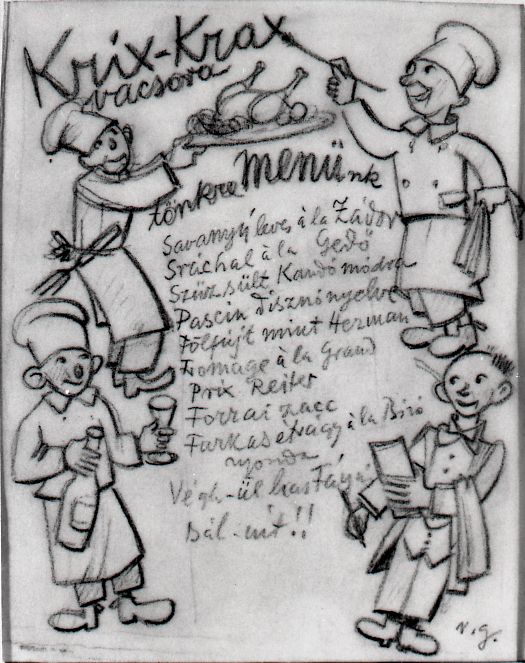 Krix-Krax
vacsora
tönkre menünk
Savanyú leves à la Zádor
Sráchal à la Gedő
Szűz sült Kandó módra
Pascin disznónyelve
Fölfújt mint Herman
Fromage à la Grand
Prix Reiter
Forrai zacc
Farkasétvágy à la Bíró
nyomda
Végh-ül has fájás
bál-int!!
v. g.